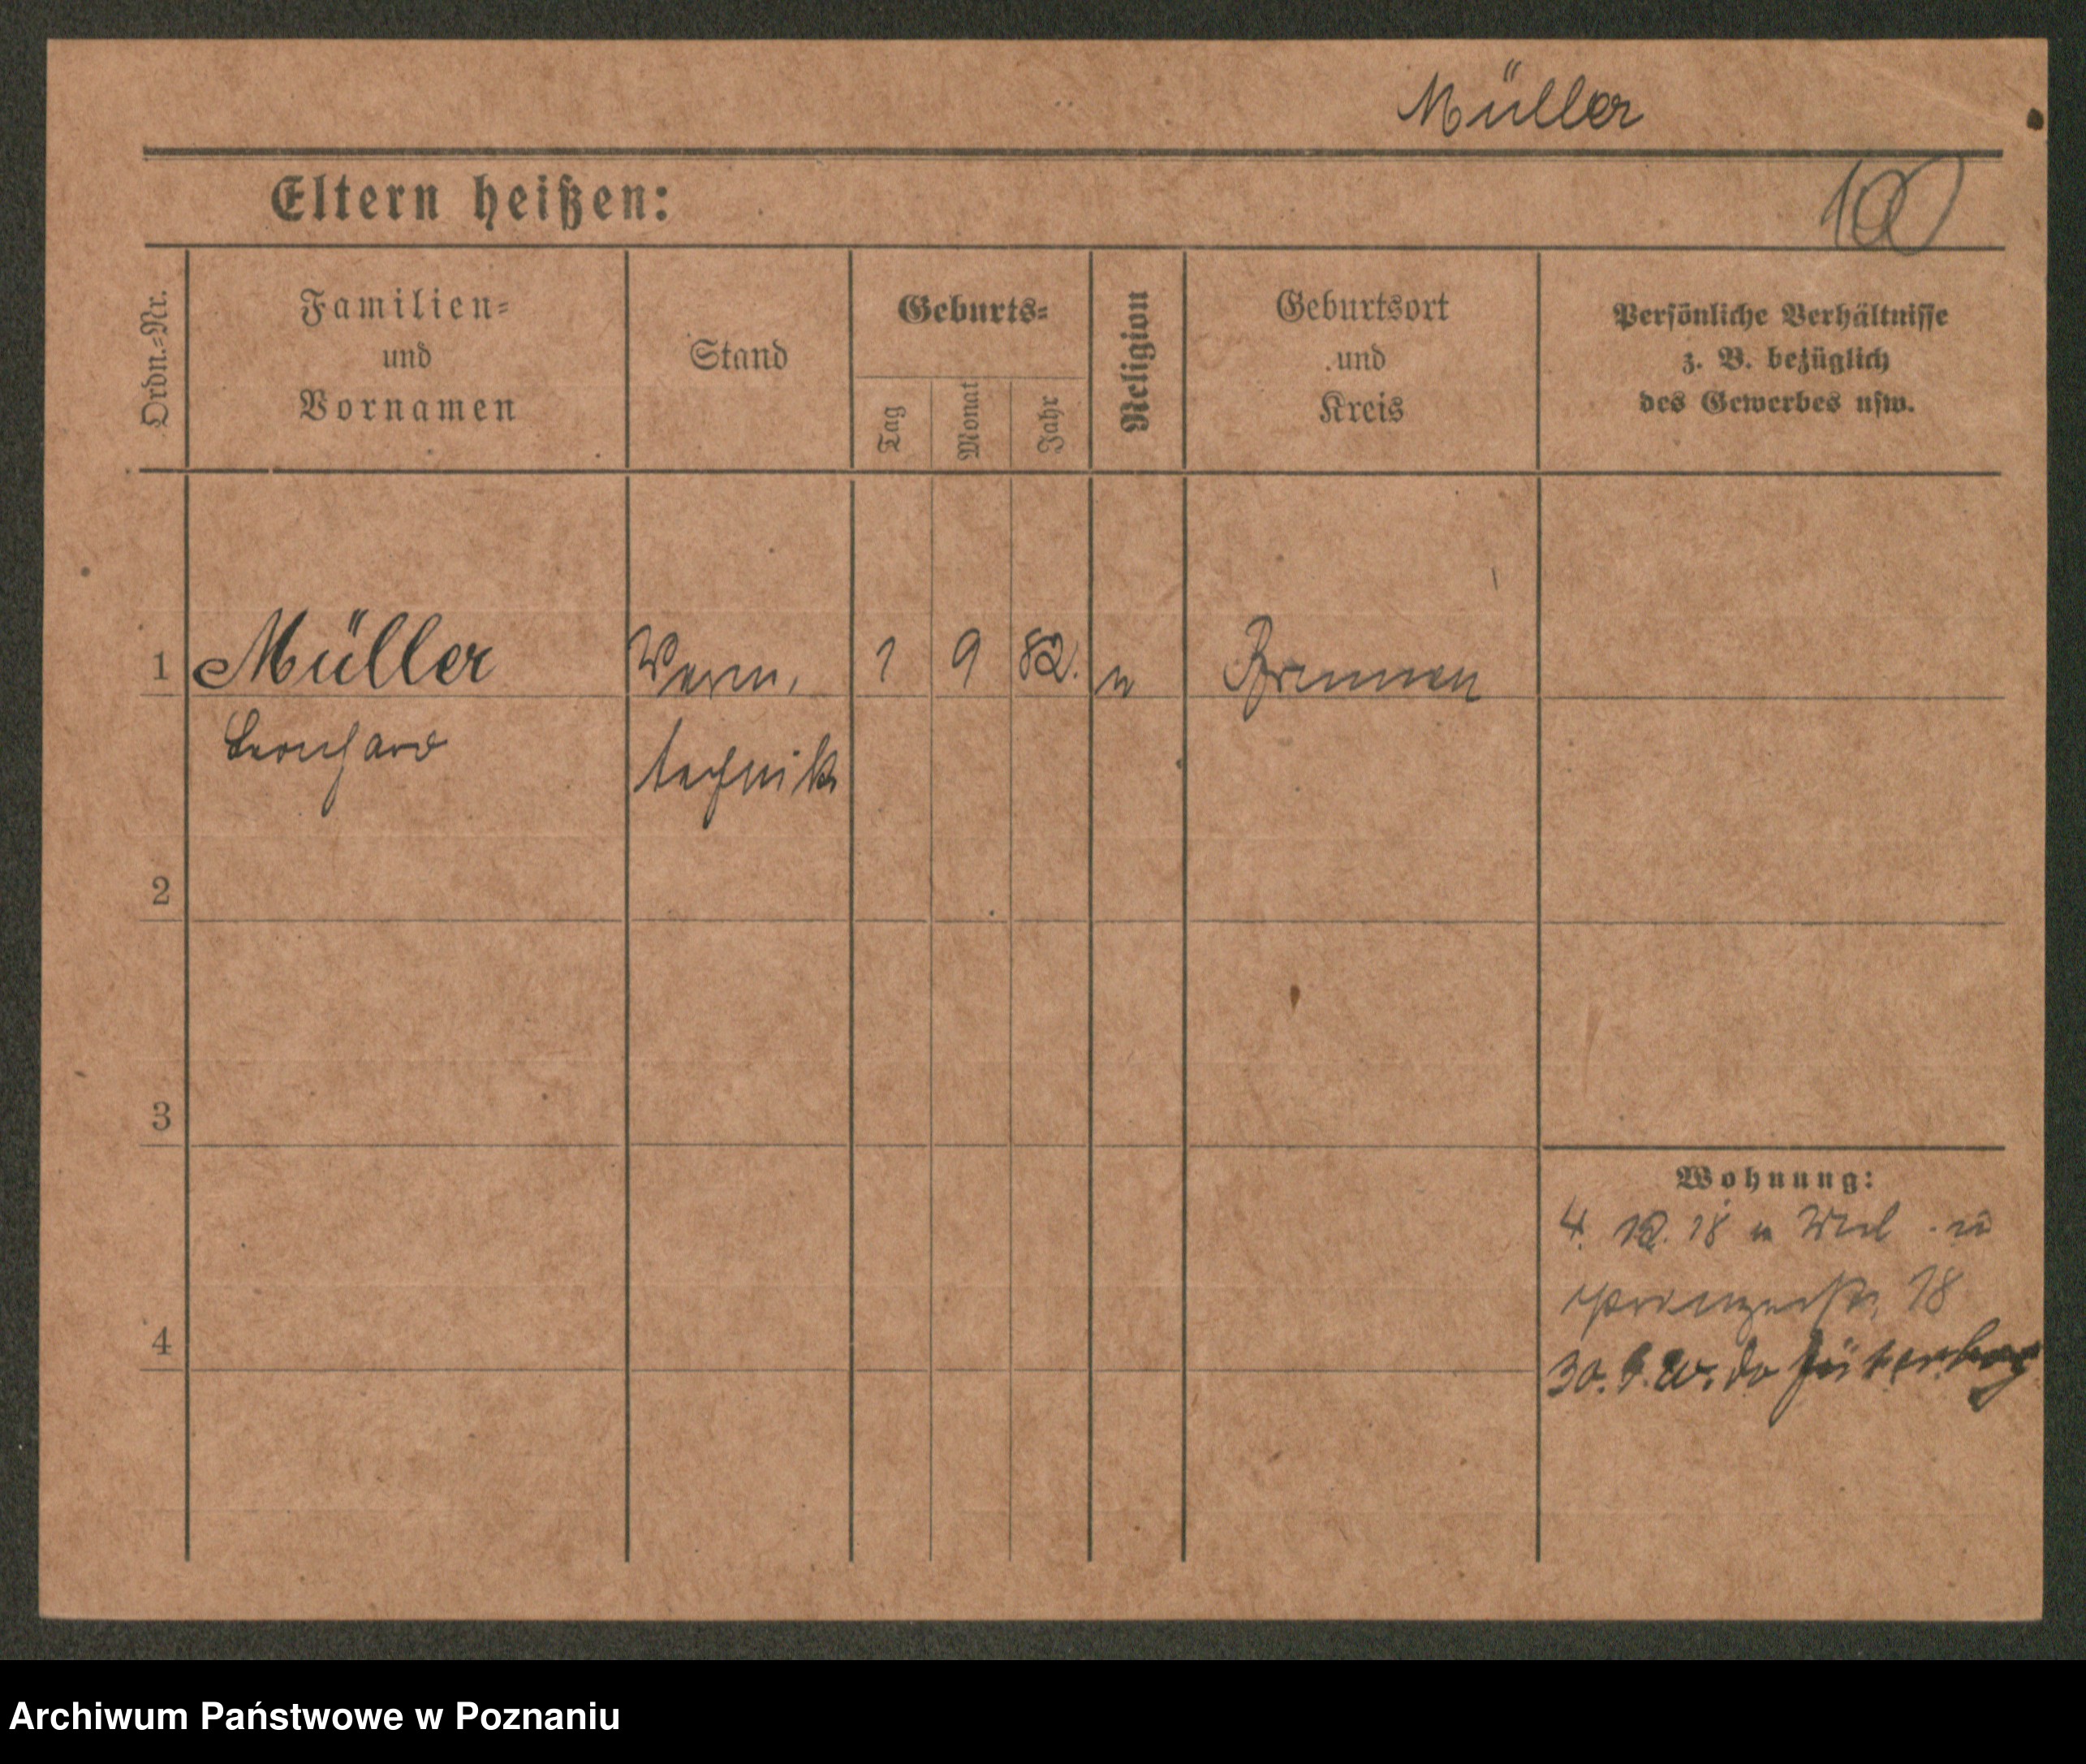 Müller
Eltern heißen:
10
Ordn.-Nr.
Familien-
und
Vornamen
Stand
Geburts-
Tag
Monat
Jahr
Religion
Geburtsort
und
Kreis
Persönliche Verhältnisse
z. B. bezüglich
des Gewerbes usw.
1 Müller Verm. 1 9 82. Bremen
Leonhard technik
2
3
Wohnung:
4. 12. 18
18
4
30. do Jüterbog
Archiwum Państwowe w Poznaniu